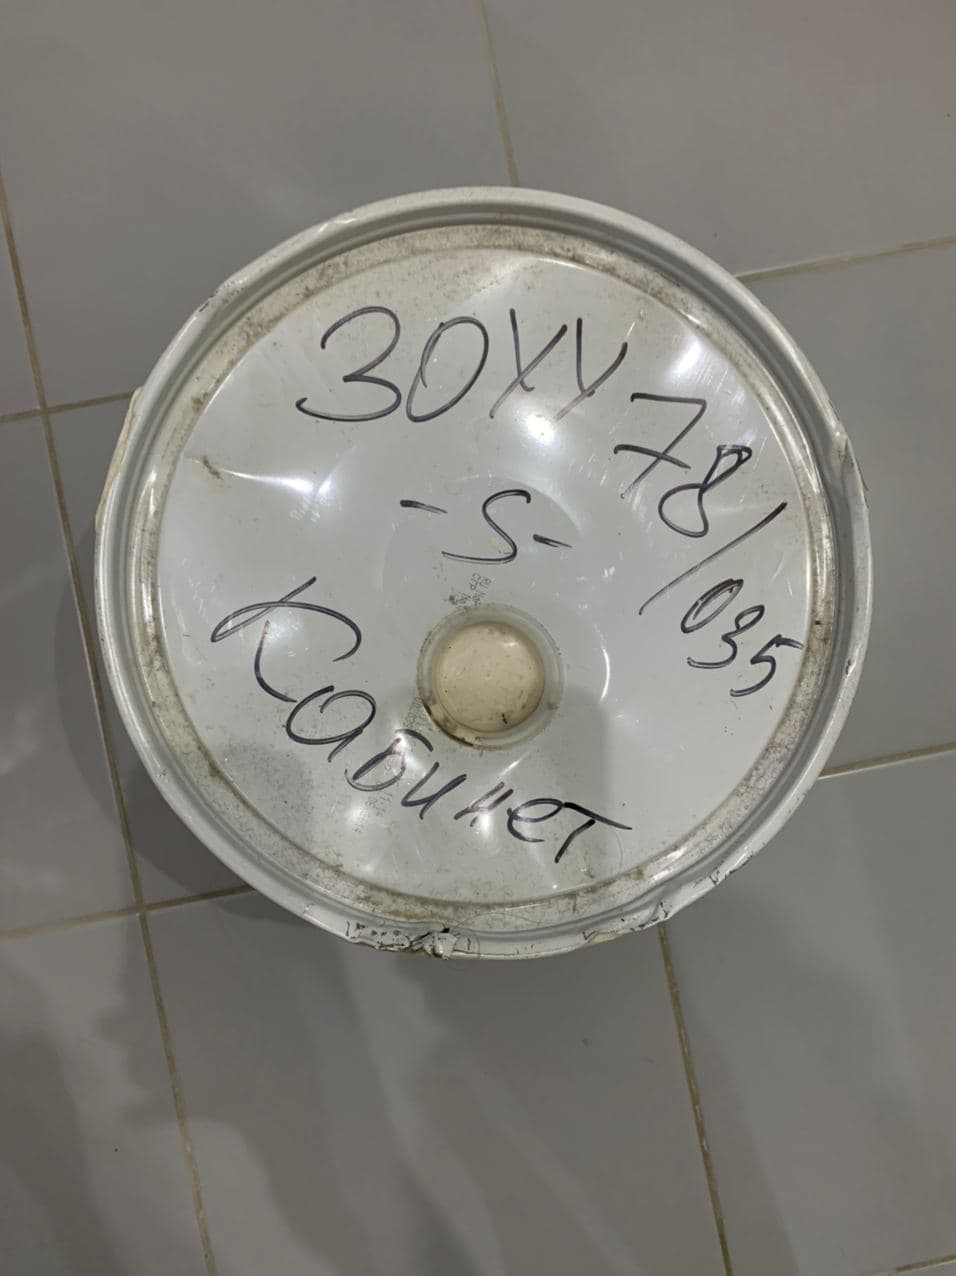 30YY 78/035
-S-
Кабинет